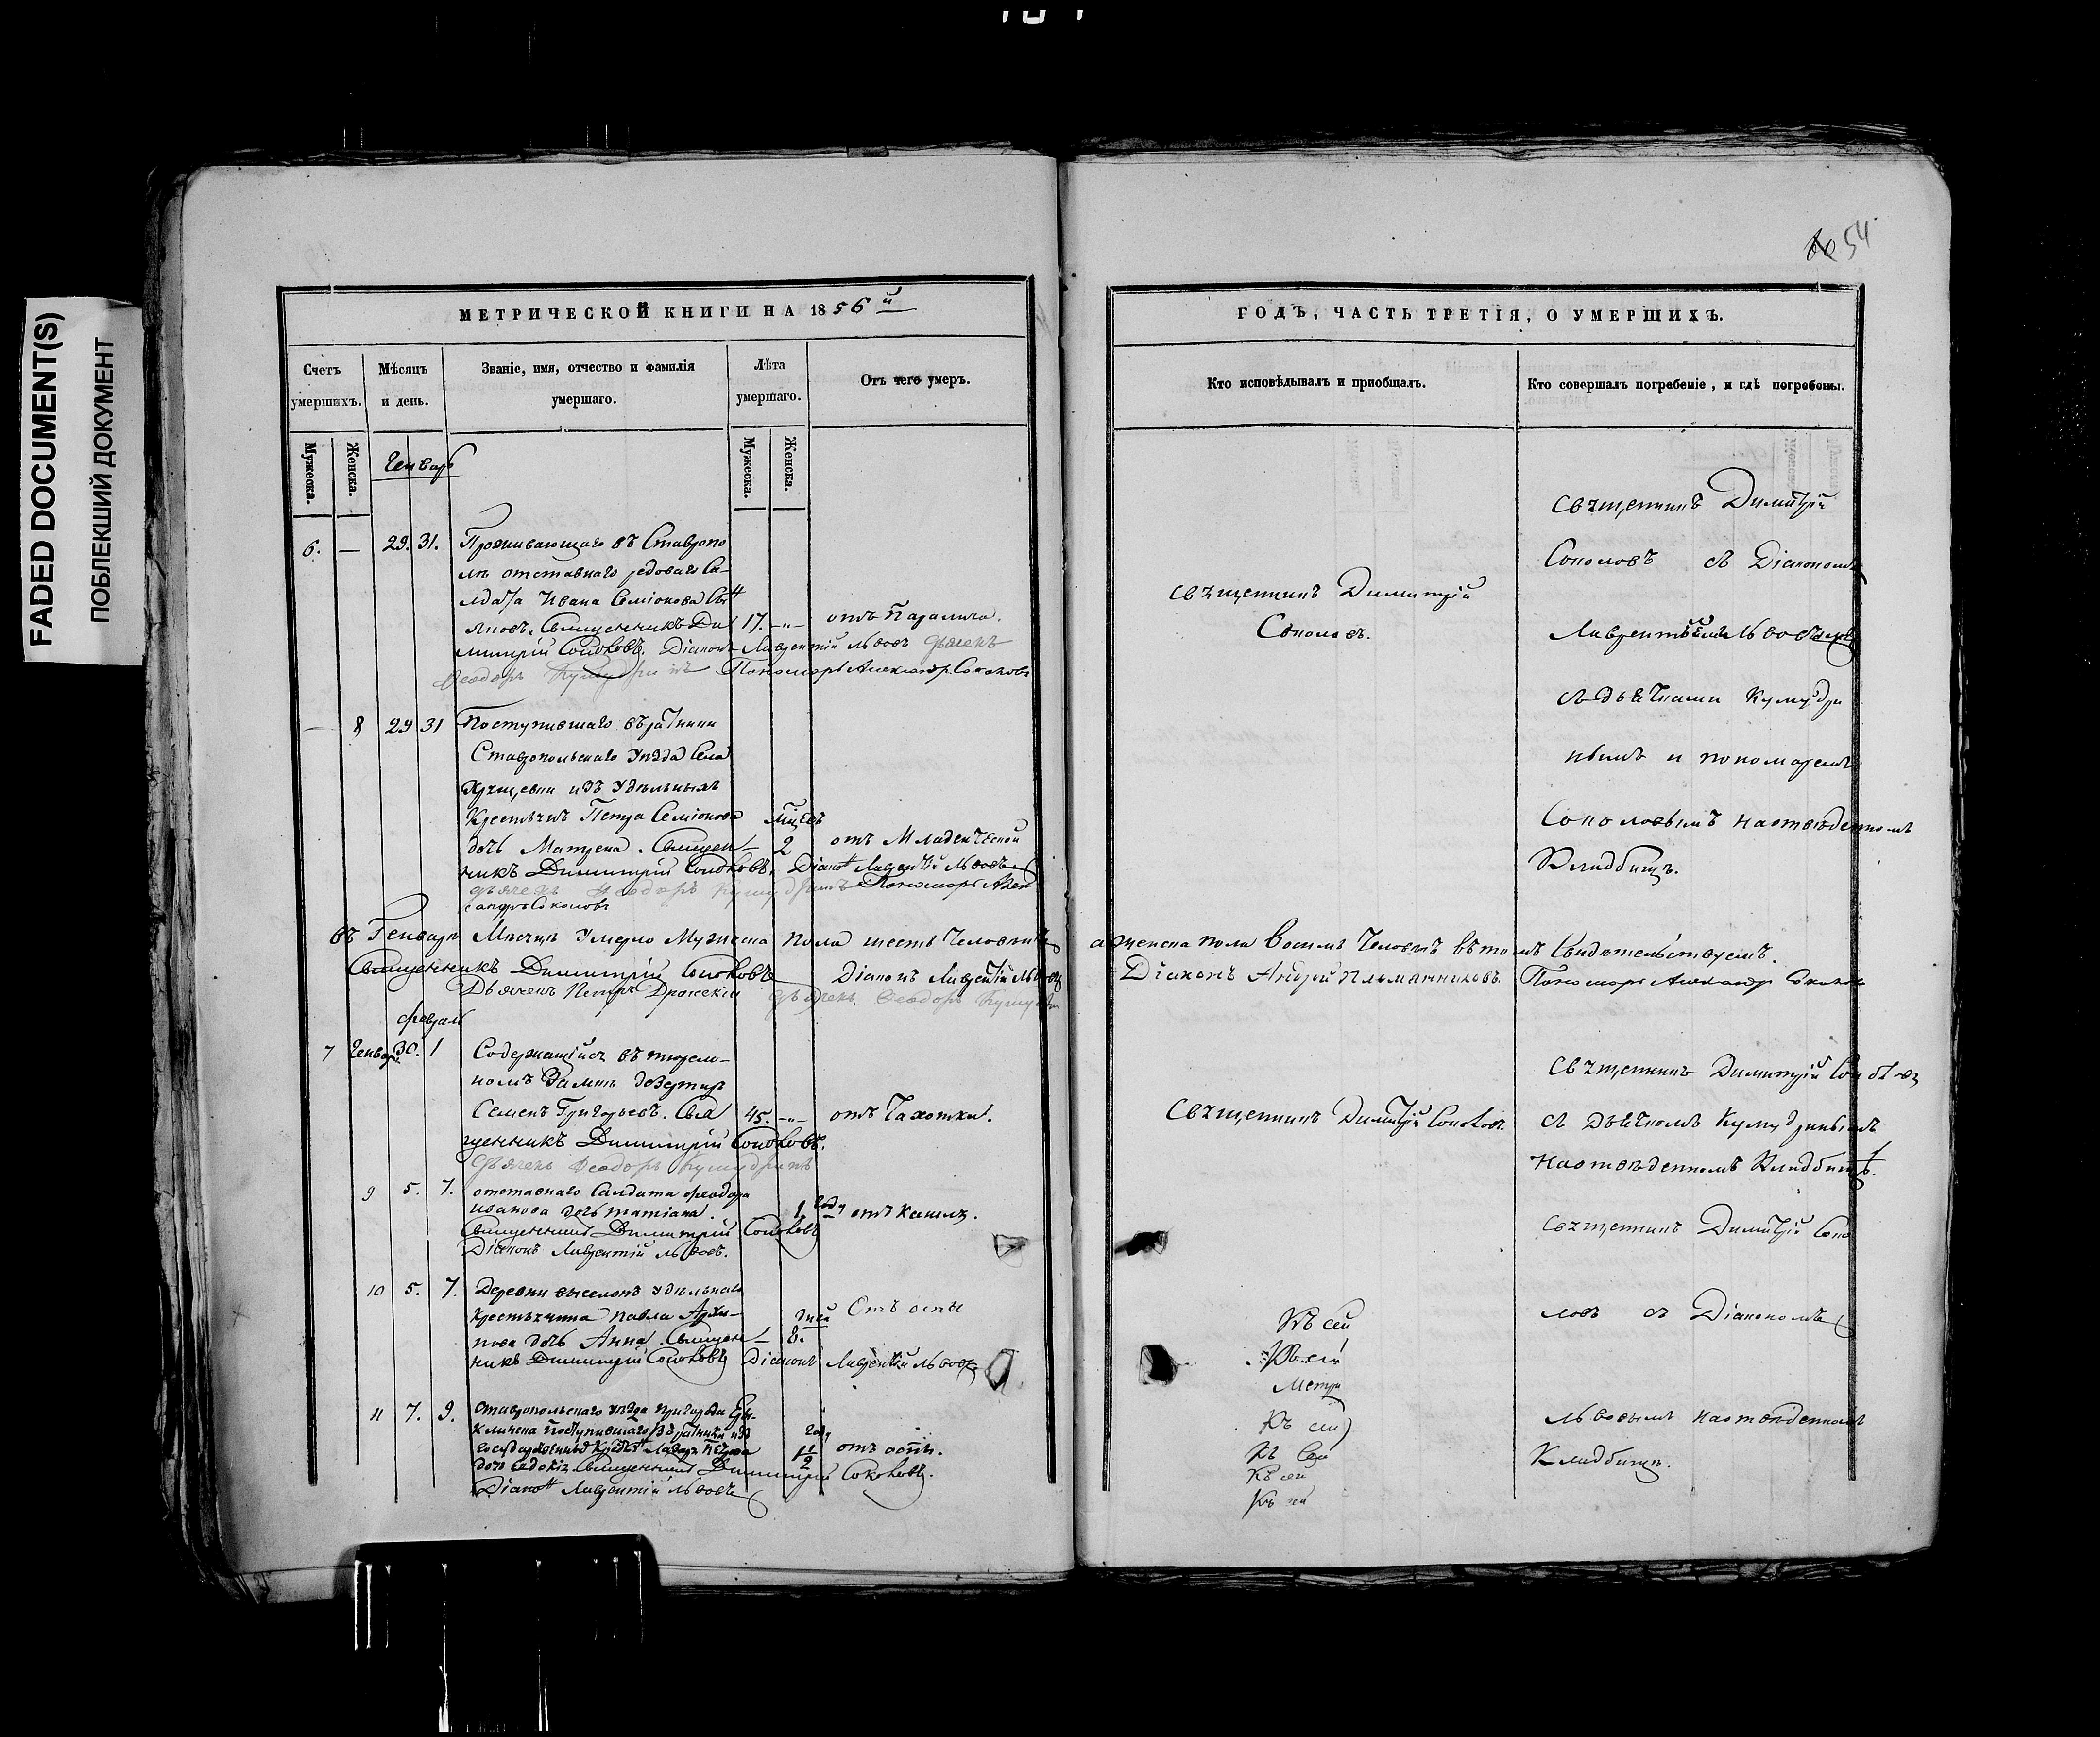 FADED DOCUMENT(S)
ПОБЛЕКШИЙ ДОКУМЕНТ
54
МЕТРИЧЕСКОЙ КНИГИ НА 1856й
Счетъ умершихъ.
Мѣсяцъ и день.
Званіе, имя, отчество и фамилія умершаго.
Лѣта умершаго.
Отъ чего умеръ.
Мужеска.
Женска.
Мужеска.
Женска.
Генварь
6. — 29. 31. Проживающаго въ Ставропо
лѣ отставнаго рядоваго Са-
лдата Ивана Семіонова Сынъ
Священникъ Ди 17. -„- отъ Паралича.
митрій Соколовъ. Діаконъ Лаврентій Львовъ Дьячекъ
Феодоръ Кумудринъ Пономарь Александръ Соколовъ
— 8 29 31 Поступившаго въ ратники
Ставропольскаго Уѣзда Села
Хрящевки изъ Удѣльныхъ
Крестьянъ Петра Семіонова мѣсяцъ
дочь Матрена. Священ- 2 отъ Младенческой
никъ Димитрій Соколовъ. Діаконъ Лаврентій Львовъ
дьячекъ Феодоръ Кумудринъ Пономарь Алек
сандръ Соколовъ
Въ Генварѣ Мѣсяцѣ Умерло Мужеска пола шесть Человѣкъ
Священникъ Димитрій Соколовъ Діаконъ Лаврентій Львовъ
Дьячекъ Петръ дьячекъ Феодоръ Кумудринъ
Февраль
7 Генваря 30. 1 Содержащійся въ тюрем-
номъ Замкѣ дезертиръ
Семенъ Григорьевъ. Свя 45. -„- отъ Чахотки.
щенникъ Димитрій Соколовъ.
Дьячекъ Феодоръ Кумудринъ
9 5. 7. отставнаго Салдата Феодора
Иванова дочь татіана. 1 году отъ Кашля.
Священникъ Димитрій Соколовъ
Діаконъ Лаврентій Львовъ.
10 5. 7. Деревни выселокъ удѣльнаго
крестьянина Павла Архи- дней Отъ оспы
пова дочь Анна. Священ- 8.
никъ Димитрій Соколовъ Діаконъ Лаврентій Львовъ
11 7. 9. Ставропольскаго уѣзда пригорода Ери-
клинска поступившаго въ ратники изъ году
дочь Евдокія. Священникъ Димитрій Соколовъ. 1 1/2 отъ оспы.
Діаконъ Лаврентій Львовъ
ГОДЪ, ЧАСТЬ ТРЕТІЯ, О УМЕРШИХЪ.
Кто исповѣдывалъ и пріобщалъ.
Кто совершалъ погребеніе, и гдѣ погребены.
Священникъ Димитрій
Соколовъ.
Священникъ Димитрій
Соколовъ съ Діакономъ
Лаврентіемъ Львовымъ
съ дьячками Кумудри
нымъ и пономаремъ
Соколовымъ на отведенномъ
Кладбищѣ.
а женска пола Восемь Человѣкъ въ томъ Свидѣтельствуемъ.
Діаконъ Андрей Племянниковъ. Пономарь Александръ Соколовъ
Священникъ Димитрій Соколовъ
Священникъ Димитрій Соколовъ
съ дьячкомъ Кумудринымъ
на отведенномъ Кладбищѣ.
Священникъ Димитрій Соко
ловъ съ Діакономъ
Львовымъ на отведенномъ
Кладбищѣ.
Къ сей
Къ сей
Метри
Къ сей
Къ Сей
Къ сей
Къ сей